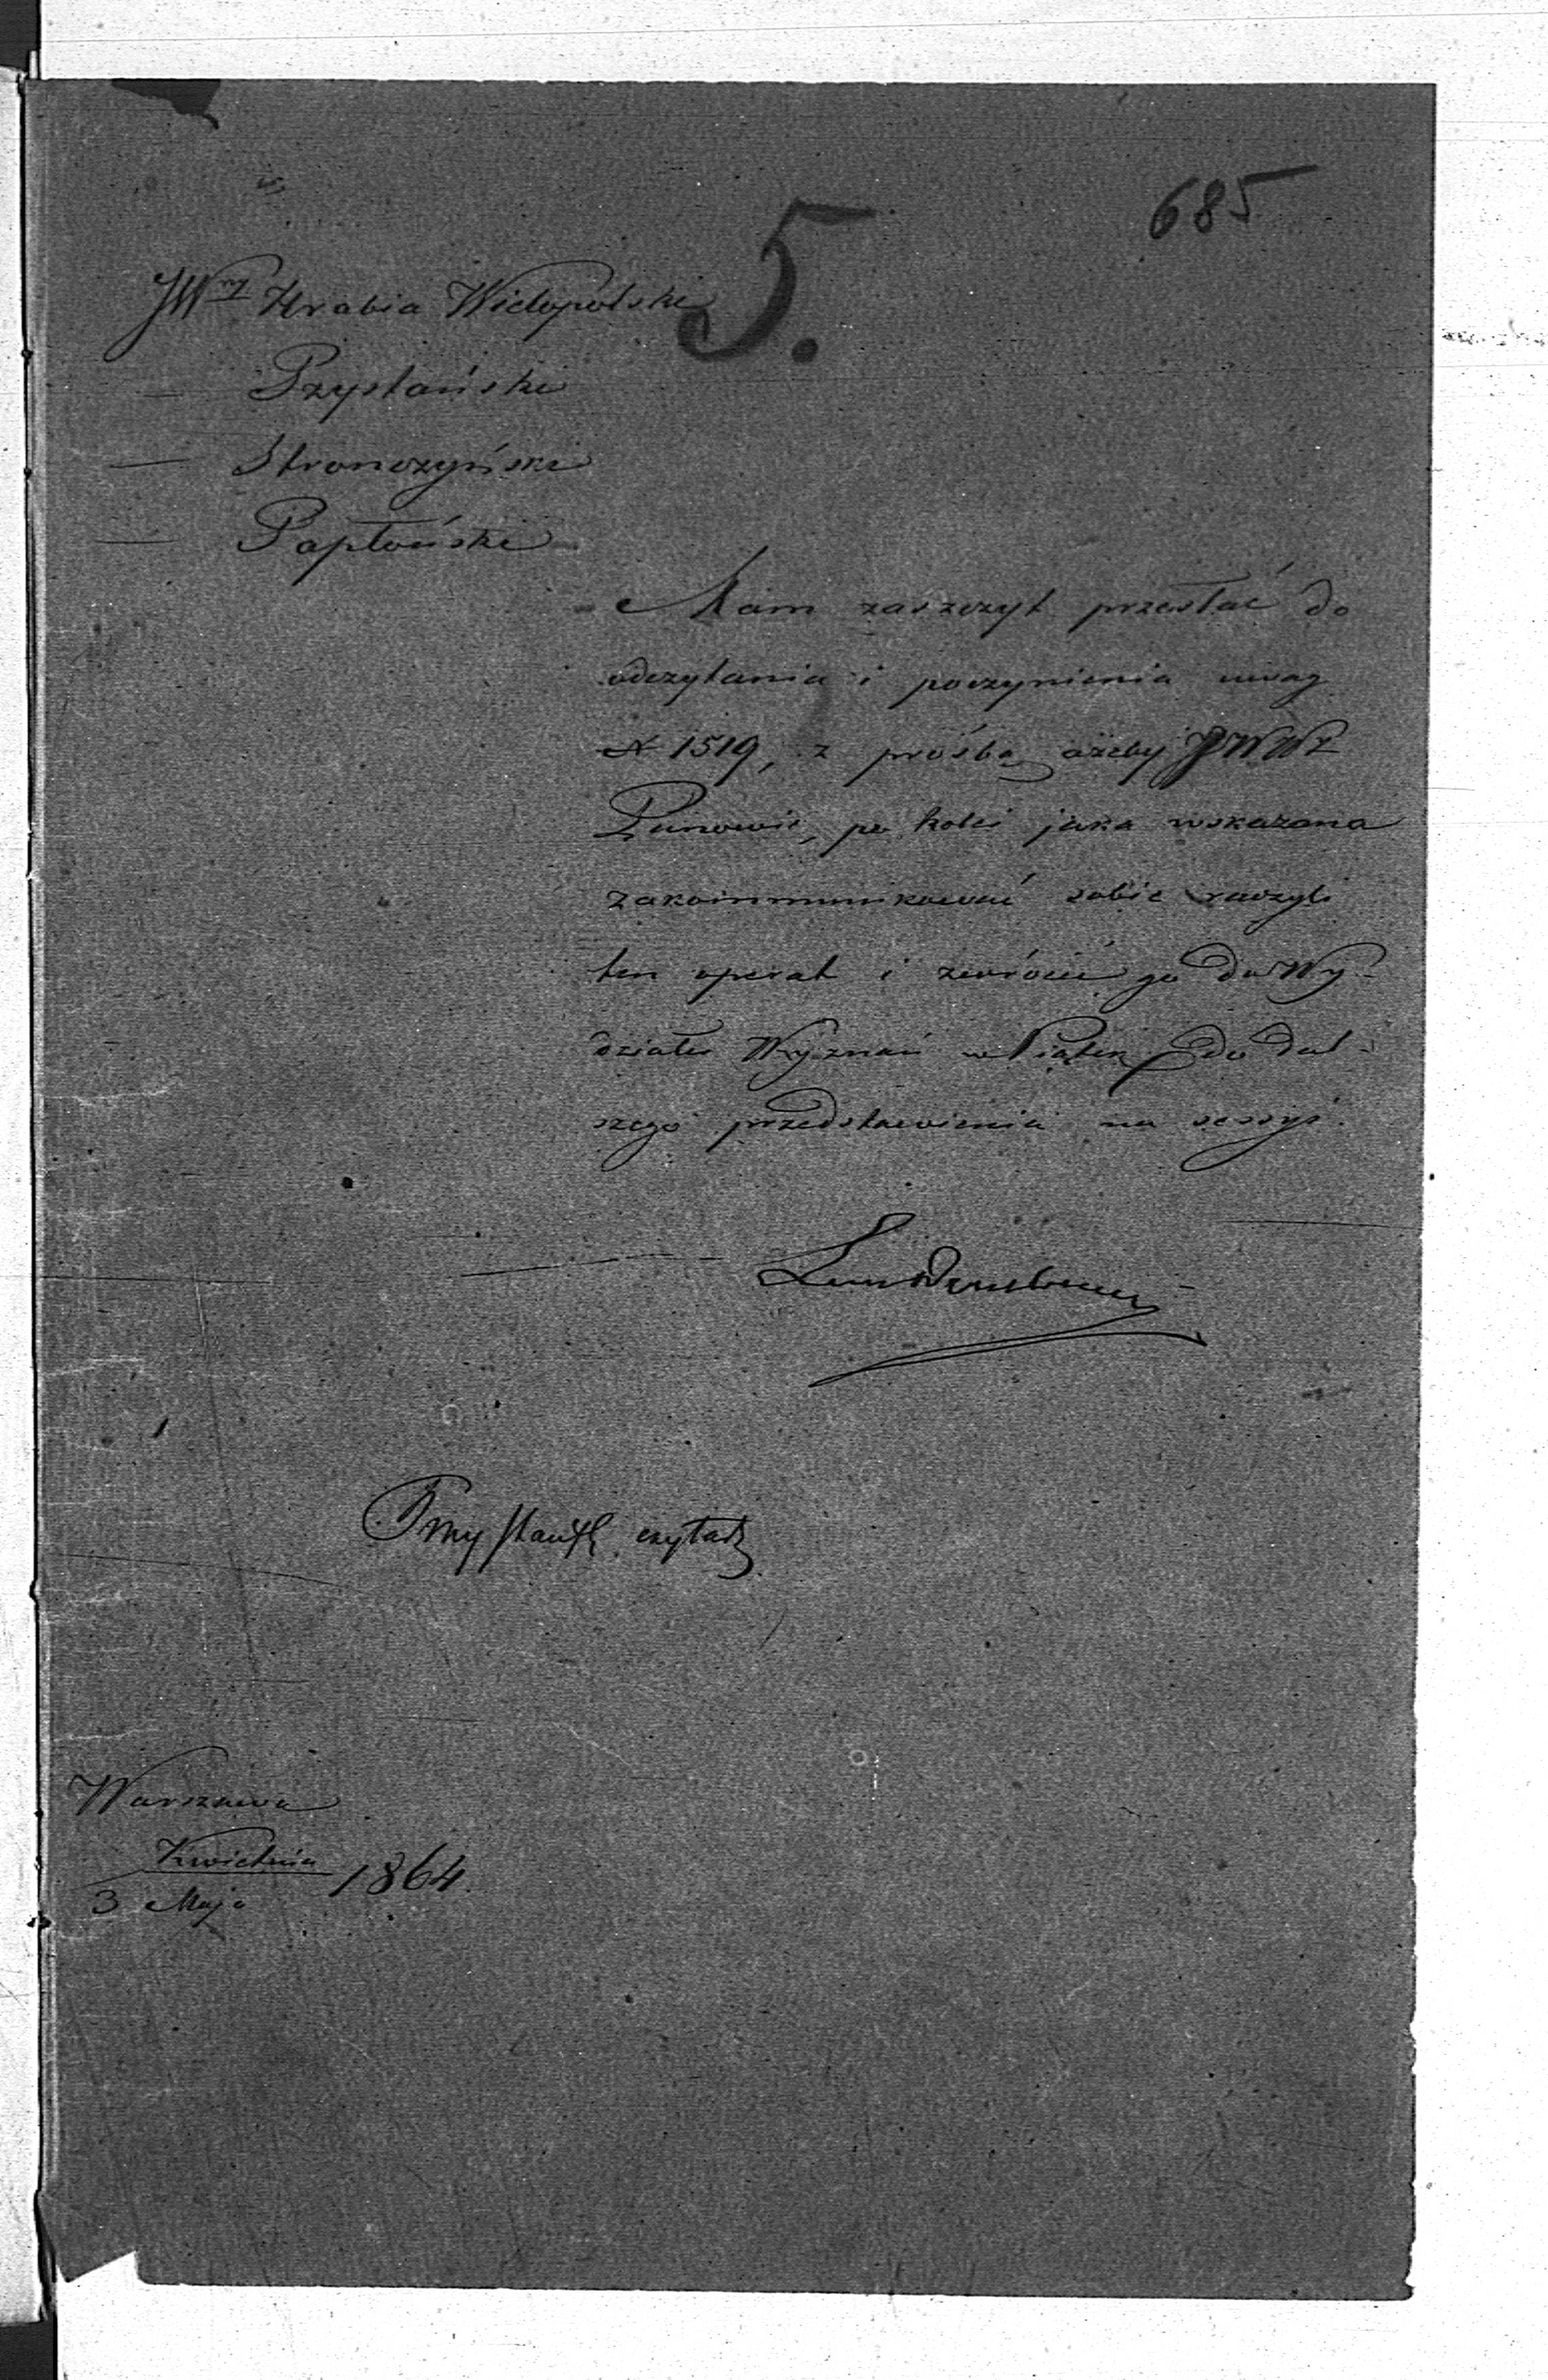 685
5.
JWny Hrabia Wielopolski
— Przystański
— Stronczyński
— Papłoński
Mam zaszczyt przesłać do
odczytania i poczynienia uwag
N 1519, z prośbą ażeby JWW
Panowie, po kolei jaka wskazana
zakommunikować sobie raczyli
ten operat i zwrócić go do Wy-
działu Wyznań w Piątek do dal-
szego przedstawienia na sessyi.
Przystański czytał
Warszawa
Kwietnia
3 Maja 1864.